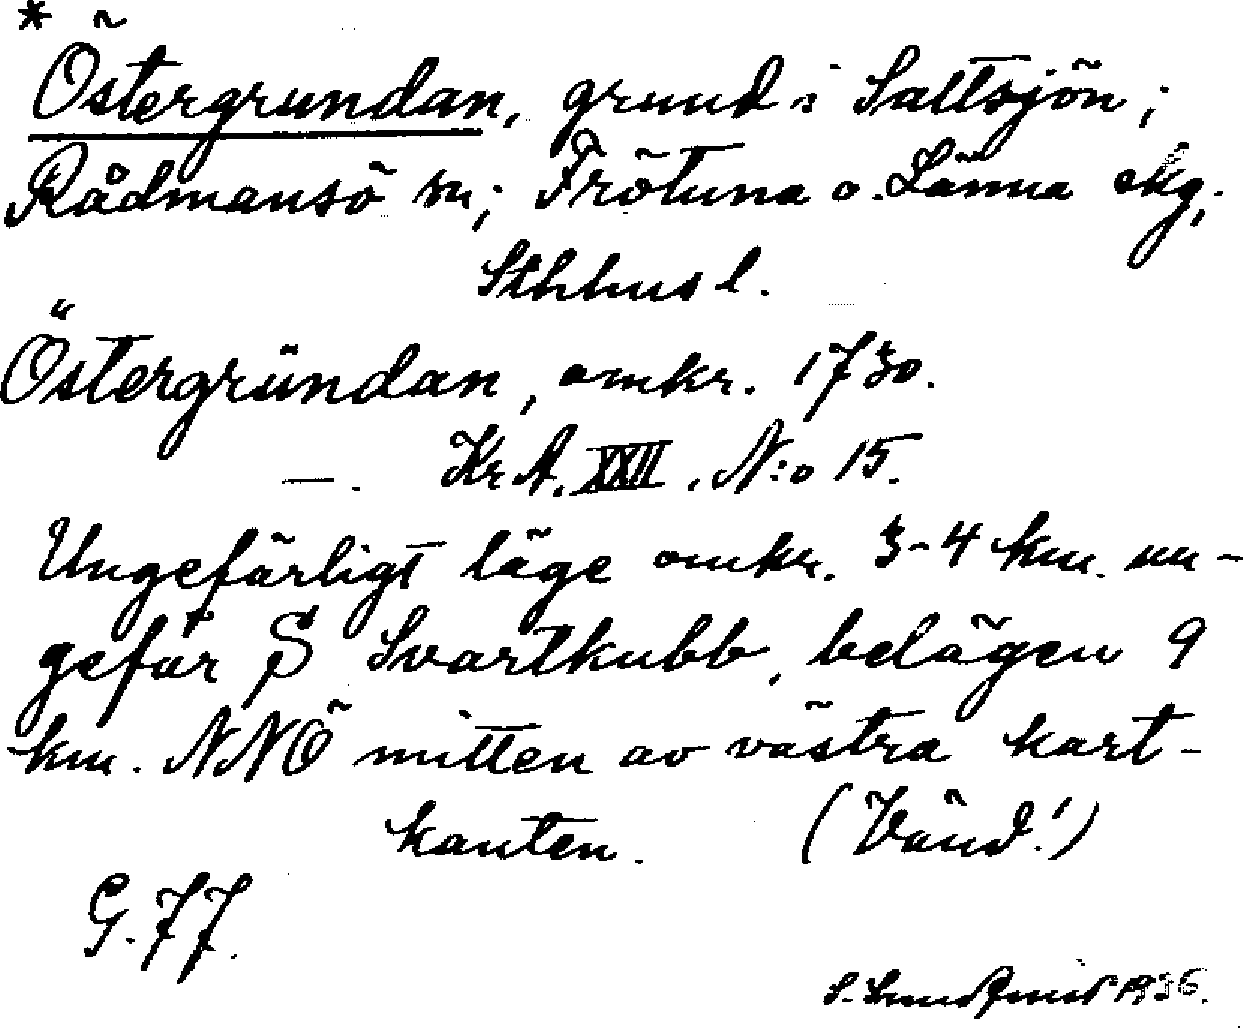 * Östergrundan, grund i Saltsjön;
Rådmansö sn; Frötuna o. Länna skg,
Sthhus l.
Östergründan, omkr. 1730.
—. Kr A. XXII. N:o 15.
Ungefärligt läge omkr. 3-4 km. un-
gefär S Svartkubb, belägen 9
km. NNÖ mitten av västra kart-
kanten. (Vänd!)
G. 77.
S. 1936.